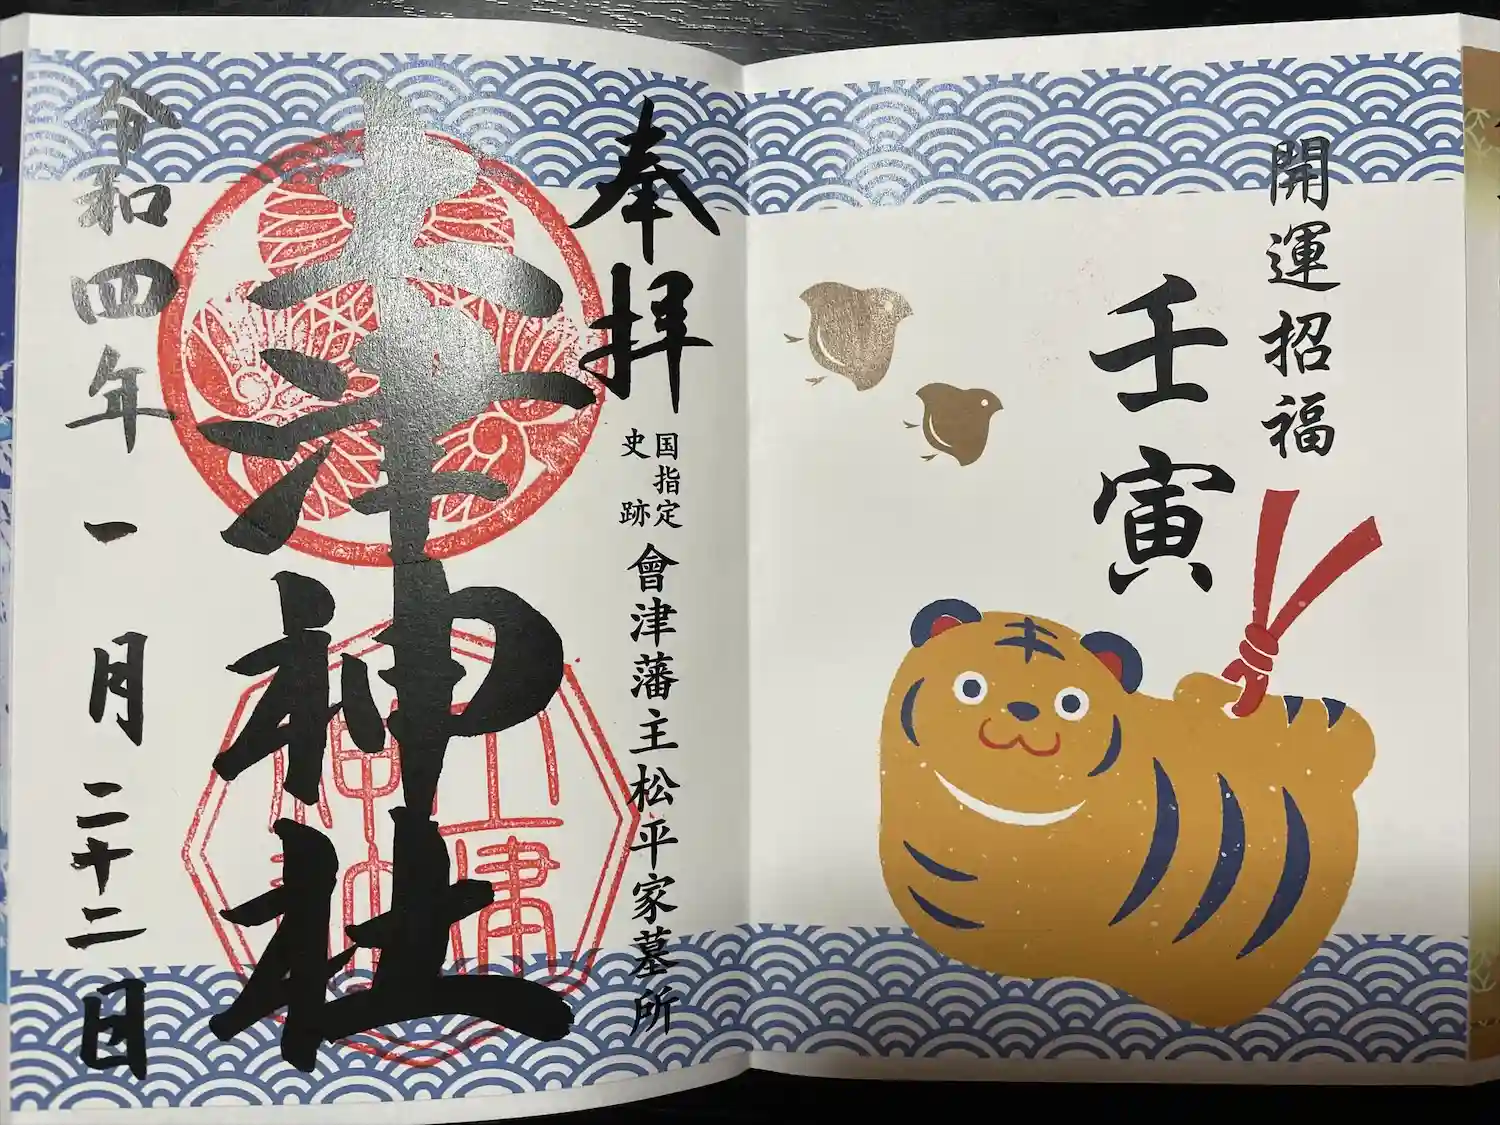 開運招福
壬寅
奉拝
国指定
史跡
會津藩主松平家墓所
土津神社
土津
神社
令和四年一月二十二日